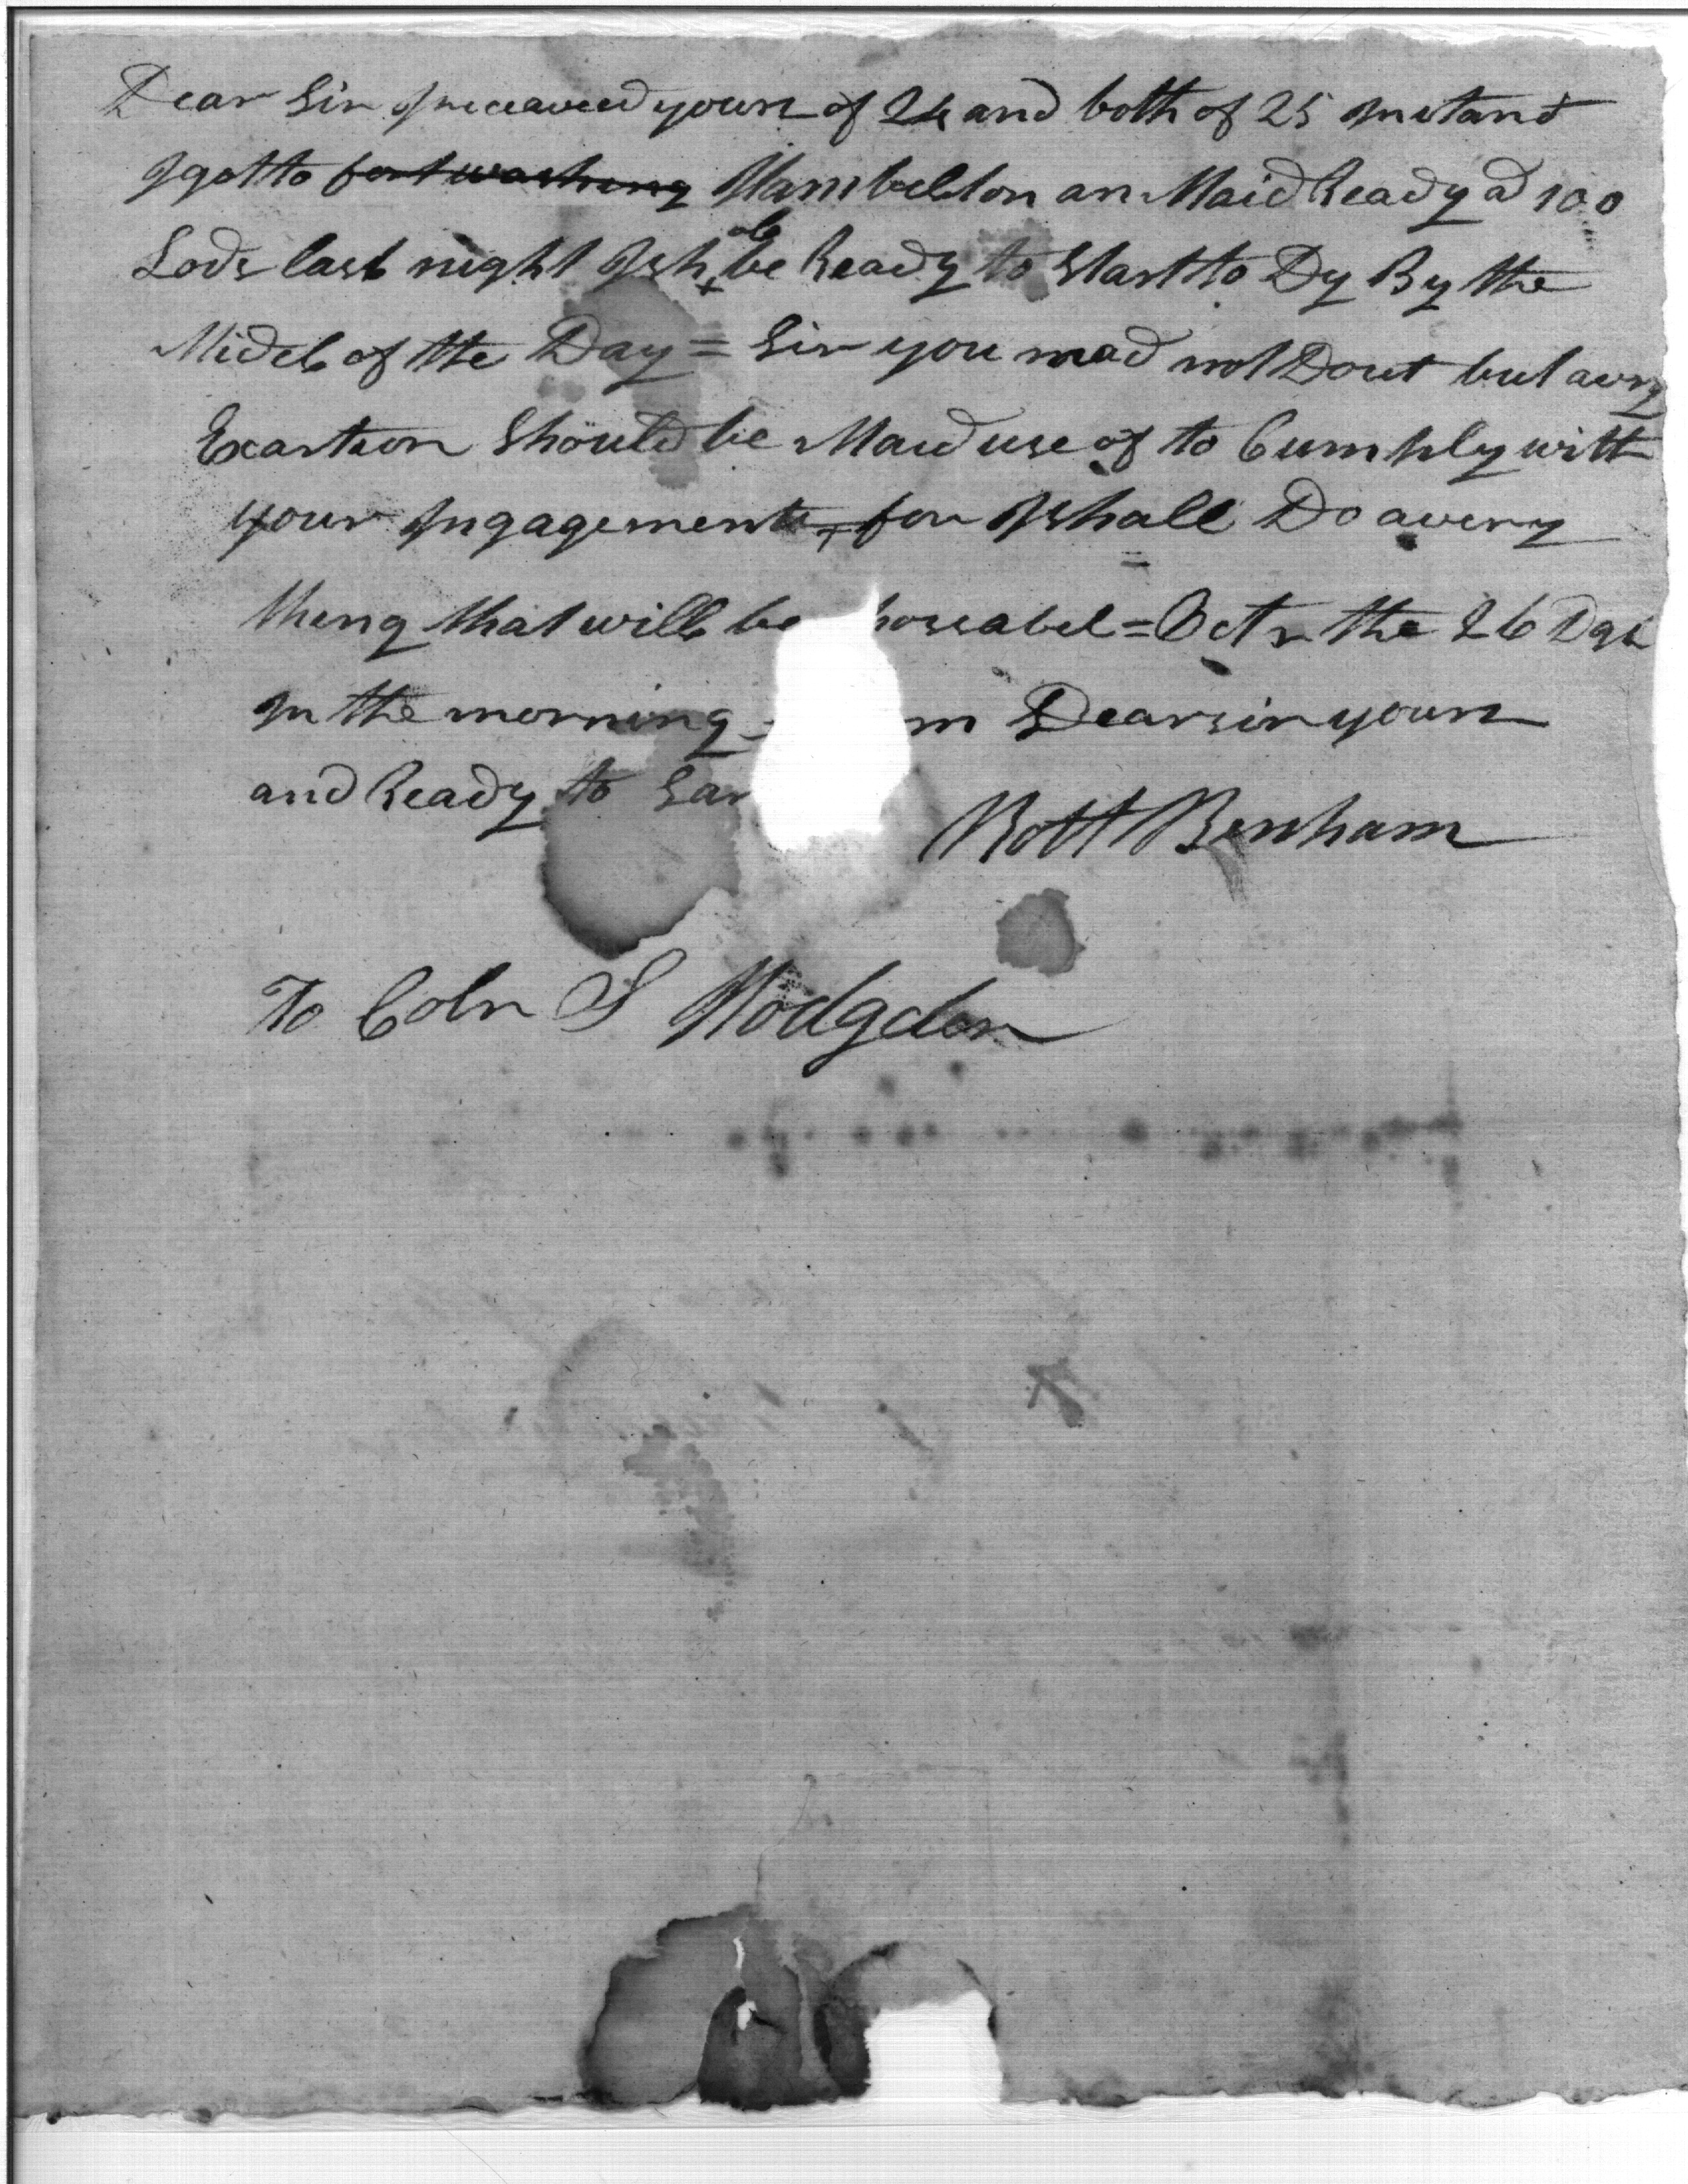 Dear Sir I receaved yours of 24 and both of 25 Instand
I got to fort washing Hambelton an Maid Ready ad 100
Lods last night I shal be Ready to Start to Dy By the
Midel of the Day = Sir you mad not Dout but avry
Exartion Should be Maid use of to Cumply with
your Ingagements, for I shall Do avery
thing that will be posabel = Octr the 26 Day
In the morning = m Dear sir yours
and Ready to Sar
Robt Benham
To Coln S Hodgdon